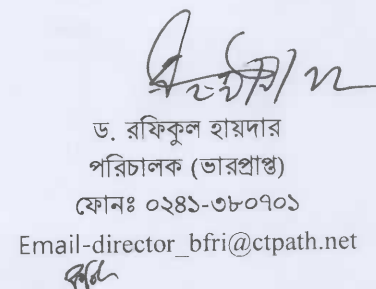 ড. রফিকুল হায়দার
পরিচালক (ভারপ্রাপ্ত)
ফোনঃ ০২৪১-৩৮০৭০১
Email-director_bfri@ctpath.net